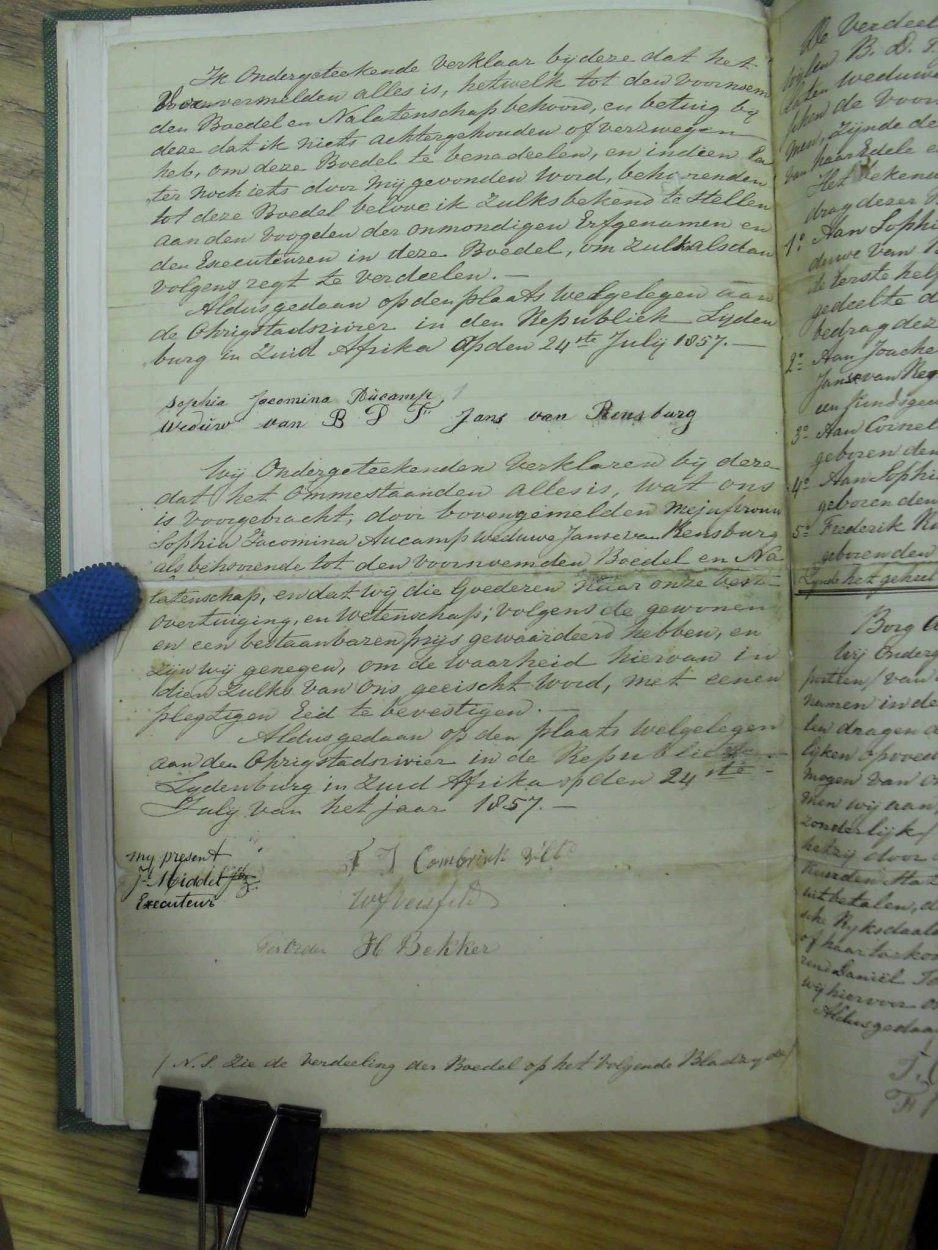 Ik Ondergeteekende verklaar bij deze dat het
Bovenvermelden alles is, hetwelk tot den voornem
den Boedel en Nalatenschap behoord, en betuig bij
deze dat ik niets achtergehouden of verzwegen
heb, om deze Boedel te benadeelen, en indien la
ter noch iets door Mij gevonden word, behoorenden
tot deze Boedel beloove ik Zulks bekend te stellen
aan den Voogden der onmondigen Erfgenamen en
den Executeuren in deze Boedel, om Zulk alsdan
volgens regt te verdeelen. —
Aldus gedaan op den plaats Welgelegen aan
de Ohrigstadsrivier in den Republiek Lyden
burg in Zuid Afrika Op den 24ste July 1857. —
Sophia Jacomina Aucamp
Weduw van B L F Jans van Rensburg
Wij Ondergeteekenden Verklaren bij deze
dat het Ommestaanden alles is, wat ons
is Voorgebracht, door bovengemelden Mejufvrouw
Sophia Jacomina Aucamp weduwe Janse van Rensburg
als behoorende tot den voornoemden Boedel en Na
latenschap, en dat wij die Goederen Naar onze beste
overtuiging, en Wetenschap, volgens de gewonen
en een bestaanbaren prijs gewaardeerd hebben, en
zijn wij genegen, om de waarheid hiervan in
dien Zulks van Ons, geeischt word, met eenen
plegtigen Eid te bevestigen. —
Aldus gedaan op den plaats welgelegen
aan den Ohrigstadsrivier in de Republiek
Lydenburg in Zuid Afrika op den 24ste
July van het jaar 1857. —
my present
J. Middel
Executeur
F J Combrink
W Versfeld
H Bekker
(N.S. Zie de Verdeeling der Boedel op het Volgende Bladzyde)
De Verdeel
B. D.
laten weduwe
de Voor
men, zijnde de
haar Edele e
Het
drag dezer
1e Aan Sophi
duwe van
de eerste helf
gedeelte d
bedrag dez
2e Aan Joache
Janse van Ren
3e Aan Cornel
geboren den
4e Aan Sophi
geboren den
5e Frederik
geboren den
Zynde het geheel
Borg
Wij Onderg
van
namen in de
len dragen
lyken
mogen van
men wij aan
zonderlijk
hetzij door
uitbetalen, d
sche Ryksdaald
of haar
Daniël
wij hiervoor
Aldus gedaa